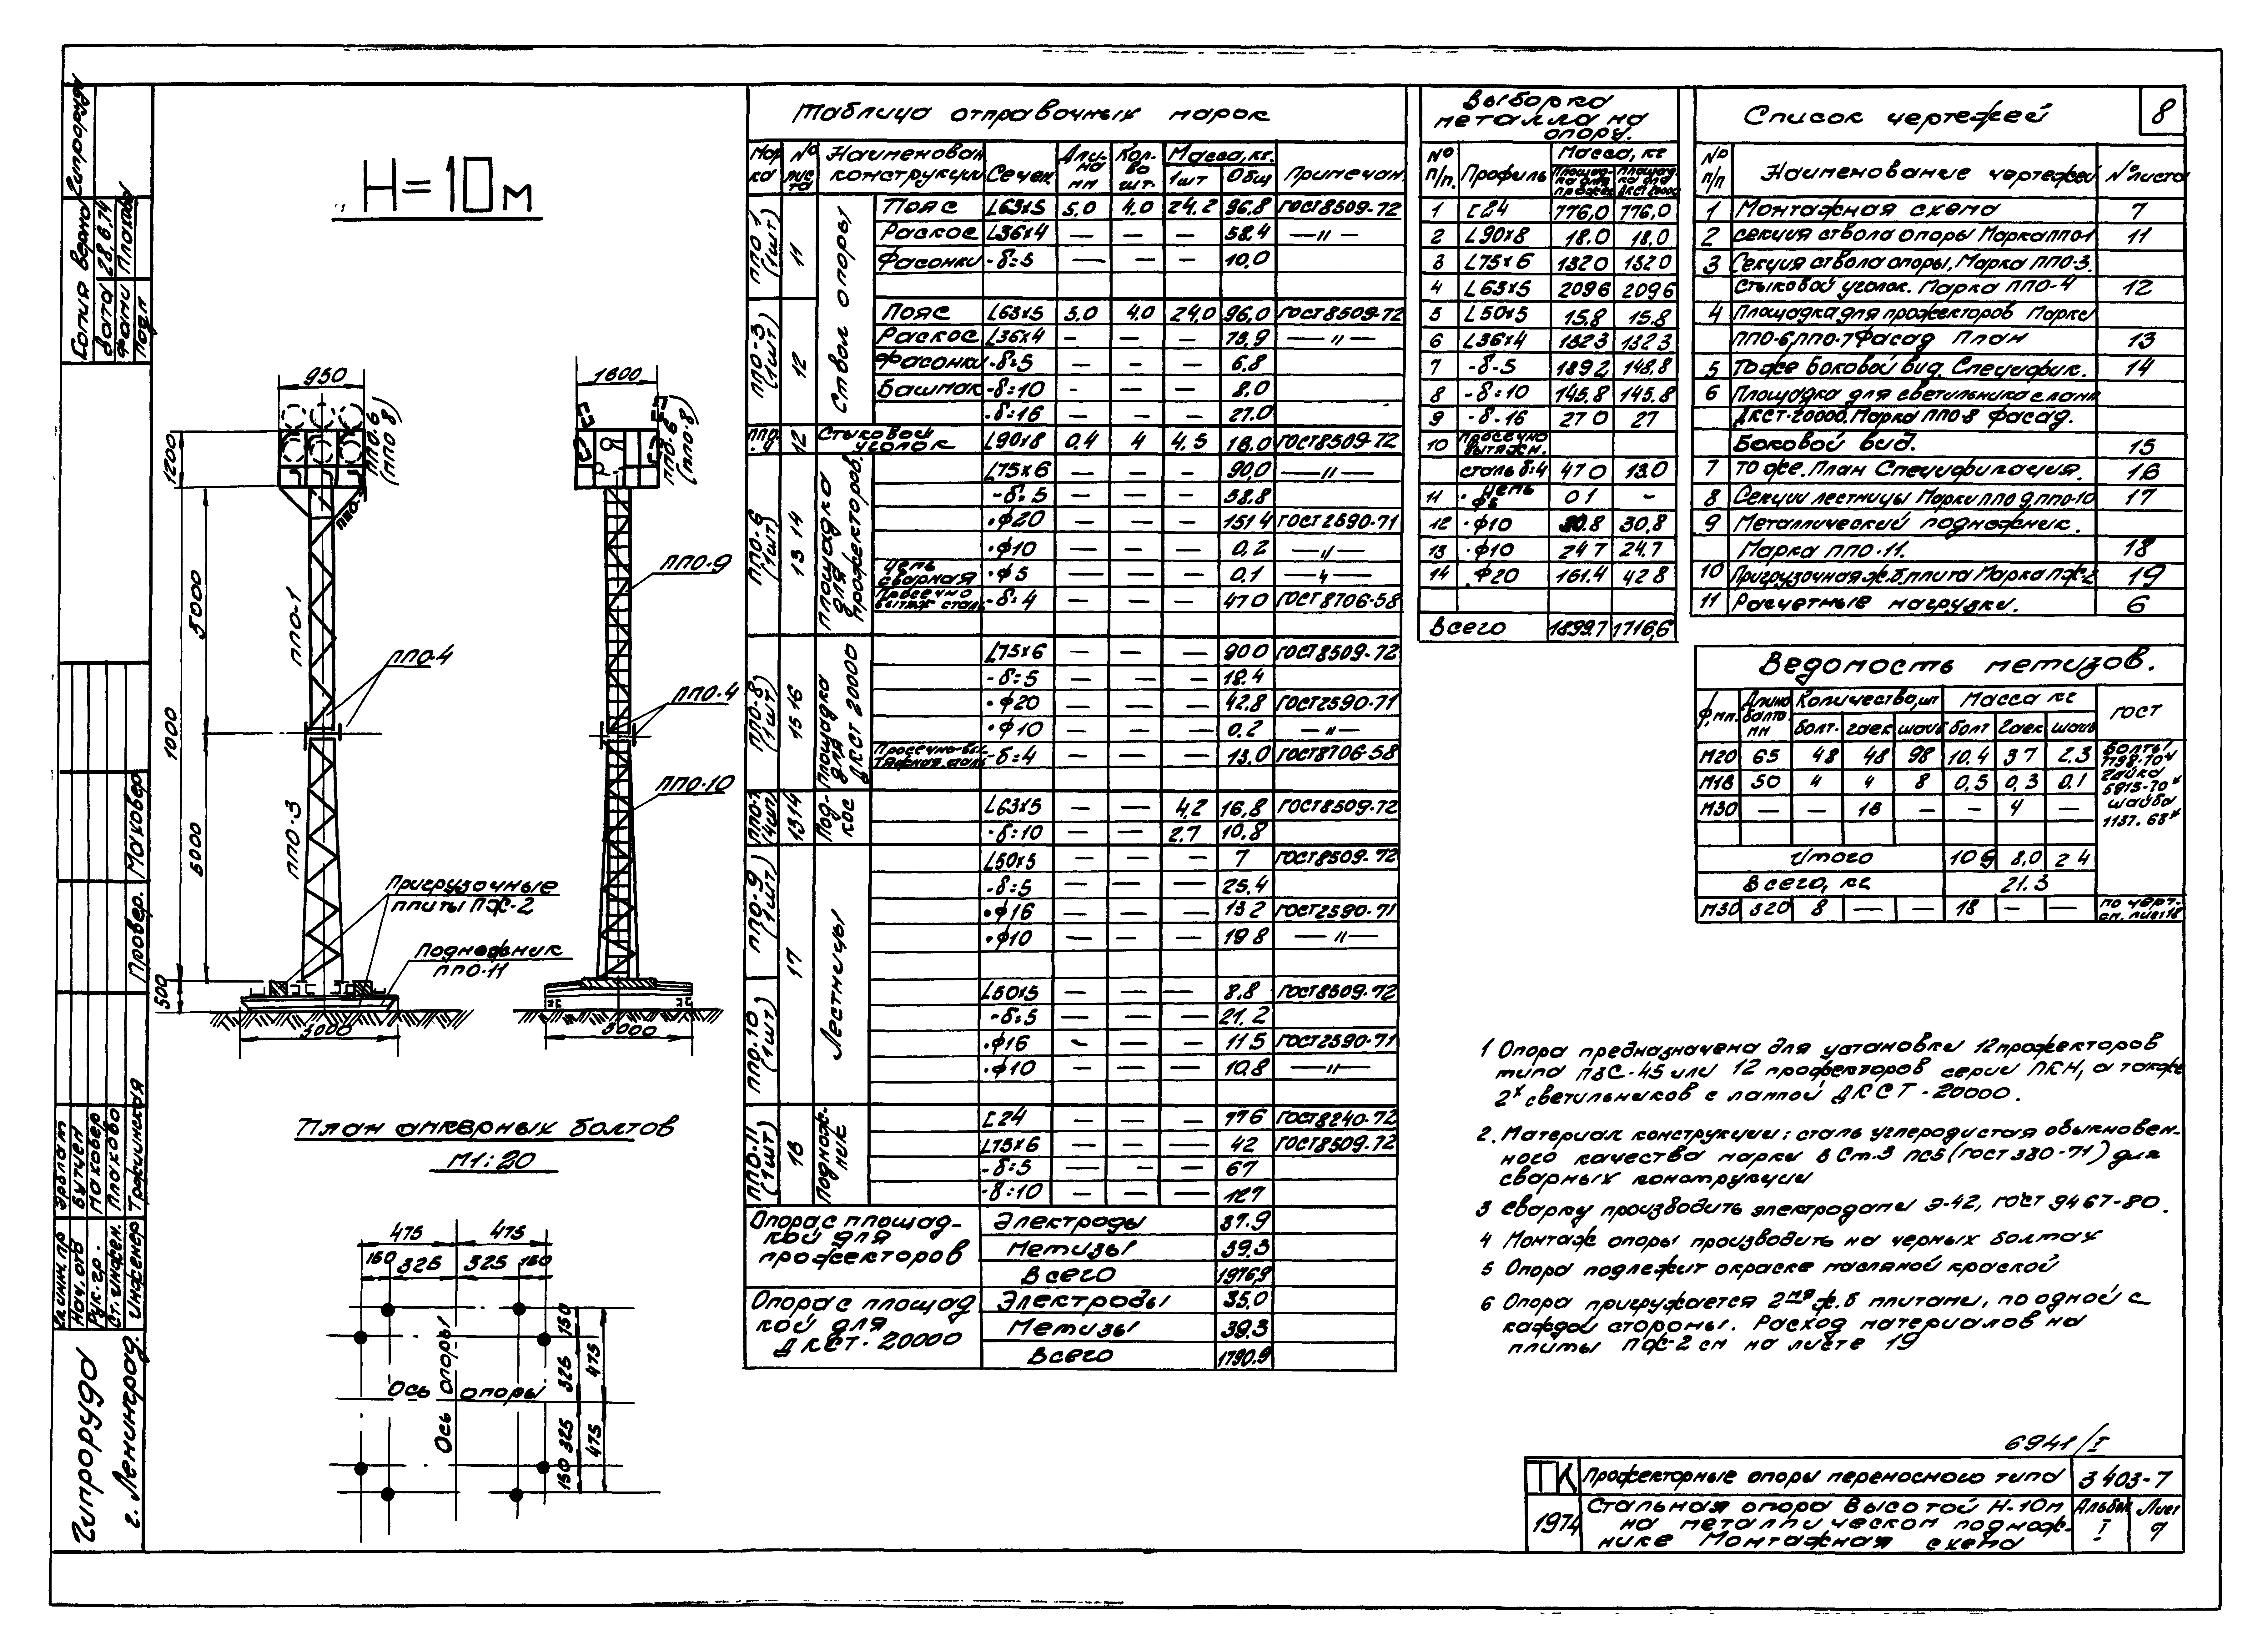 Н=10м
950
1200
5000
1000
5000
500
3000
ППО-1
ППО-3
ППО-6
(ППО 8)
ППО-4
Пригрузочные
плиты ПЖ-2
Подножник
ППО-11
1600
ППО-6
(ППО-8)
ППО-9
ППО-4
ППО-10
3000
План анкерных болтов
М1:20
475 475
150 325 325 150
150
325 475
325 475
150
Ось опоры
Ось опоры
Таблица отправочных марок
Марка № листа Наименован. конструкции Сечен. Длина мм Кол-во шт. Масса, кг. 1шт Общ Примечан.
ППО 1 (1шт) 11 Ствол опоры
Пояс L63х5 5.0 4.0 24.2 96.8 ГОСТ8509-72
Раскос L36х4 — — — 58.4 —"—
Фасонки -δ=5 — — — 10.0
ППО-3 (1шт) 12
Пояс L63х5 5.0 4.0 24.0 96.0 ГОСТ8509-72
Раскос L36х4 — — — 73.9 —"—
Фасонки -δ=5 — — — 6.8
Башмак -δ=10 - — — 8.0
-δ=16 — — — 27.0
12 Стыковой уголок L90х8 0.4 4 4.5 18.0 ГОСТ8509-72
ППО-6 (1шт) 13 14 Площадка для прожекторов.
L75х6 — — — 90,0 —"—
-δ=5 — — — 58.8
•ф20 — — — 151 4 ГОСТ2590-71
•ф10 — — — 0.2 —"—
цепь сварная •ф5 — — — 0.1 —"—
Просечно вытяж сталь -δ=4 — — — 47 0 ГОСТ8706-58
ППО-8) (1шт) 15 16 Площадка для ДКСТ 20000
L75х6 — — — 90 0 ГОСТ8509-72
-δ=5 — — — 18.4
•ф20 — — — 42,8 ГОСТ2590-71
•ф10 — — — 0.2 —"—
Просечно-вытяжная сталь -δ=4 — — — 13,0 ГОСТ8706-58
ППО-7 (4шт) 13 14 Подкос
L63х5 — — 4,2 16,8 ГОСТ8509-72
-δ=10 — — 2.7 10.8
ППО-9) (1шт) 17 Лестницы
L50х5 — — — 7 ГОСТ8509-72
-δ=5 — — — 25.4
•ф16 — — — 13 2 ГОСТ2590-71
•ф10 — — — 19 8 —"—
ППО-10 (1шт)
L50х5 — — — 8,8 ГОСТ8509-72
-δ=5 — — — 21.2
•ф16 — — — 11 5 ГОСТ2590-71
•ф10 — — — 10,8 —"—
ППО-11 (1шт) 18 Подножник
[24 — — — 776 ГОСТ8240-72
L75х6 — — — 42 ГОСТ8509-72
-δ=5 — — — 67
-δ=10 — — — 127
Опора с площадкой для прожекторов
Электроды 37.9
Метизы 39.3
Всего 1976,9
Опора с площадкой для ДКСТ-20000
Электроды 35,0
Метизы 39,3
Всего 1790.9
Выборка
металла на
опору.
№ п/п. Профиль Масса, кг Площадка для прожек Площадка для ДКСТ 20000
1 [24 776,0 776,0
2 L90х8 18.0 18,0
3 L75х6 132 0 132 0
4 L63х5 209 6 209 6
5 L50х5 15.8 15.8
6 L36х4 132 3 132 3
7 -δ-5 189 2 148,8
8 -δ=10 145,8 145.8
9 -δ-16 27 0 27
10 Просечно вытяжн. сталь δ=4 47 0 13.0
11 •цепь ф5 0 1 -
12 •ф10 30.8 30.8
13 •ф10 24 7 24.7
14 •ф20 161.4 42 8
Всего 1899.7 1716,6
Список чертежей
8
№ п/п Наименование чертежей № листа
1 Монтажная схема 7
2 секция ствола опоры Марка ППО-1 11
3 Секция ствола опоры, Марка ППО-3.
Стыковой уголок. Марка ППО-4 12
4 Площадка для прожекторов Марки
ППО-6, ППО-7 Фасад План 13
5 То же Боковой вид. Специфик. 14
6 Площадка для светильника с ламп
ДКСТ-20000. Марка ППО-8 фасад.
Боковой вид. 15
7 То же. План Спецификация. 16
8 Секции лестницы Марки ППО 9, ППО-10 17
9 Металлический подножник.
Марка ППО-11. 18
10 Пригрузочная ж.б. плита Марка ПЖ-2 19
11 Расчетные нагрузки. 6
Ведомость метизов.
Ф, мм. Длина болта мм Количество, шт Масса кг ГОСТ
болт. гаек шайб болт гаек шайб
М20 65 48 48 98 10.4 3 7 2.3
М18 50 4 4 8 0,5 0,3 0.1
М30 — — 16 — — 4 —
Болты 7798-70* гайка 5915-70* шайба 1137.68*
Итого 10 9 8,0 2 4
Всего, кг 21.3
М30 520 8 — — 18 — — по черт. см. лист 18
1 Опора предназначена для установки 12 прожекторов
типа ПЗС-45 или 12 прожекторов серии ПКН, а также
2х светильников с лампой ДКСТ-20000.
2. Материал конструкции: сталь углеродистая обыкновен-
ного качества марки В Ст.3 пс5 (ГОСТ 380-71) для
сварных конструкции
3 Сварку производить электродами Э-42, ГОСТ 9467-80.
4 Монтаж опоры производить на черных болтах
5 Опора подлежит окраске масляной краской
6 Опора пригружается 2мя ж.б плитами, по одной с
каждой стороны. Расход материалов на
плиты ПЖ-2 см на листе 19
6941/I
ТК Прожекторные опоры переносного типа 3 403-7
1974 Стальная опора высотой Н-10м
на металлическом поднож-
нике Монтажная схема
Альбом I Лист 9
Копия верна Гипроруда
Дата 28.6.74
Фами Плакова
Подп
Провер. Маковер
Гл.инж.пр Эрвлат
Нач.отв Бутчен
Рук.гр. Маковер
Ст.инжен. Плаково
Инженер Трофимская
Гипроруда
г. Ленинград.